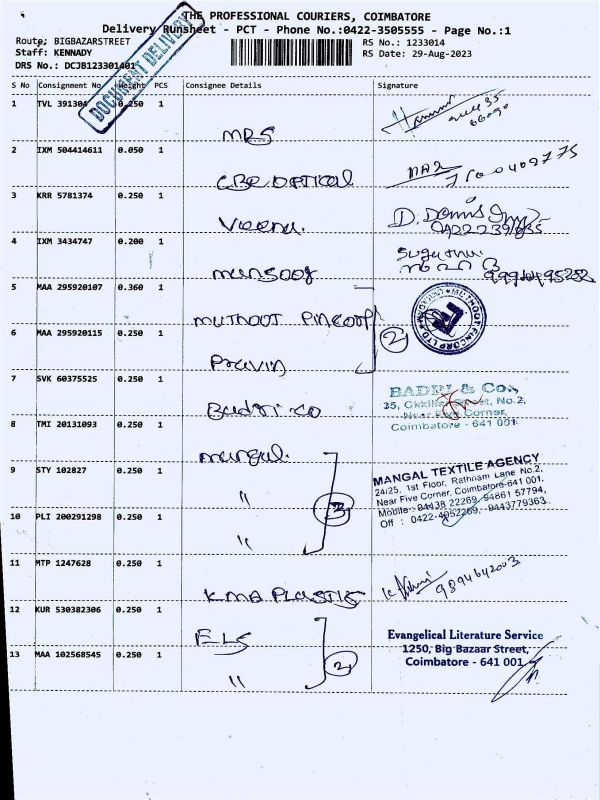 THE PROFESSIONAL COURIERS, COIMBATORE
Delivery Runsheet - PCT - Phone No.:0422-3505555 - Page No.:1
Route: BIGBAZARSTREET
RS No.: 1233014
Staff: KENNADY
RS Date: 29-Aug-2023
DRS No.: DCJB123301401
DOCUMENT DELIVERY
S No Consignment No Weight PCS Consignee Details Signature
1 TVL 391304 0.250 1
MRS
2 IXM 504414611 0.050 1
CBE OPTICAL
3 KRR 5781374 0.250 1
Veenu.
4 IXM 3434747 0.200 1
mansoor
5 MAA 295920107 0.360 1
MUTHOOT FINCORP
2
6 MAA 295920115 0.250 1
Pravin
7 SVK 60375525 0.250 1
Badri co
BADRI & Co.,
35, Street, No.2,
Near Five Corner,
Coimbatore - 641 001
8 TMI 20131093 0.250 1
mangal.
9 STY 102827 0.250 1
"
3
MANGAL TEXTILE AGENCY
24/25, 1st Floor, Rathnam Lane No.2,
Near Five Corner, Coimbatore-641 001.
Mobile : 94438 22269, 94861 57794,
Off : 0422-4952269, 9443779363
10 PLI 200291298 0.250 1
"
11 MTP 1247628 0.250 1
KMA PLASTIC
9894642003
12 KUR 530382306 0.250 1
ELS
2
Evangelical Literature Service
1250, Big Bazaar Street,
Coimbatore - 641 001
13 MAA 102568545 0.250 1
"